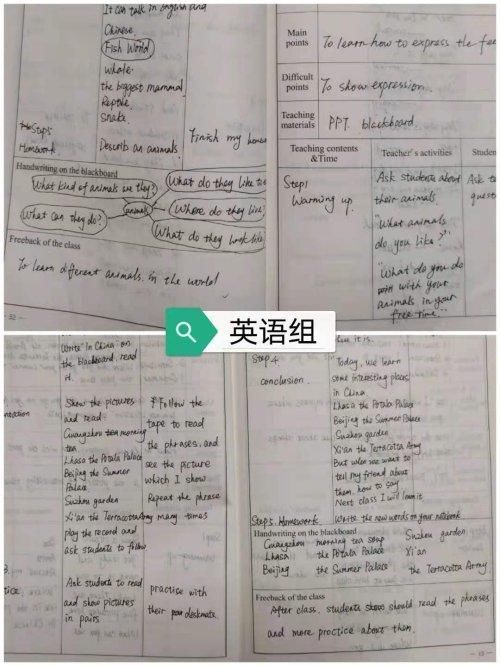 It can talk in English and
Chinese.
Fish World
whale.
the biggest mammal.
Reptile.
Snake.
Step5
Homework. Describ an animals. Finish my
Handwriting on the blackboard
What kind of animals are they?
What do they like to
animals
Where do they live
What can they do?
What do they look like
Freeback of the class
To learn different animals. in the world
- 32 -
Main
points
To learn how to express the
Difficult
points
To show expression.
Teaching
materials
PPT. blackboard
Teaching contents
&Time
Teacher's activities
Studen
Step1
Warning up.
Ask students about
their animals.
"What animals
do you like?"
"What do you do
with your
animals in your
free time."
Ask
quest
英语组
Write "In China" on
the blackboard, read
it.
Show the pictures
and read:
Guangzhou tea morning
tea
Lhasa the Potala Palace
Beijing the Summer
Palace
Suzhou garden
Xi'an the Terracotta Army
play the record and
ask students to follow
Follow the
tape to read
the phrases. and
see the picture
which I show
Repeat the phrase
many times
Ask students to read
and show pictures
in pairs
practise with
their deskmate.
it is.
Step 4
conclusion.
"Today, we learn
some interesting places
in China
Lhasa the Potala Palace
Beijing the Summer Palace
Suzhou garden
Xi'an the Terracotta Army
But when we want to
tell my friend about
them, how to say
Next class I will
Step5. Homework. Write the new words on your notebook
Handwriting on the blackboard
Guangzhou morning tea soup Suzhou garden
Lhasa the Potala Palace Xi'an
Beijing the Summer Palace the Terracotta Army
Freeback of the class
After class, students should read the phrases
and more practice about them.